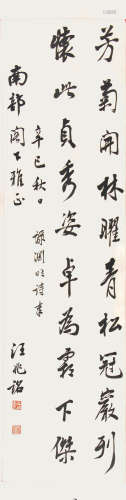 芳菊開林曜青松冠巖列
懷此貞秀姿卓為霜下傑
辛巳秋日 錄淵明詩奉
南都閣下雅正
汪兆銘